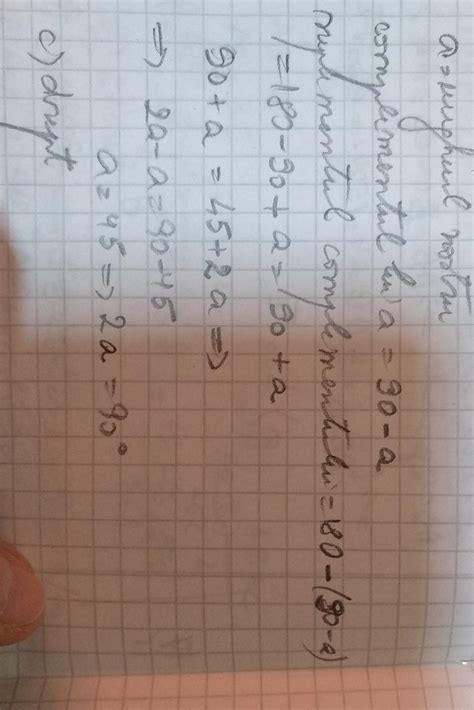 a = unghiul nostru
complementul lui a = 90 - a
suplimentul complimentului = 180 - (90 - a)
= 180 - 90 + a = 90 + a
90 + a = 45 + 2a =>
=> 2a - a = 90 - 45
a = 45 => 2a = 90°
c) drept